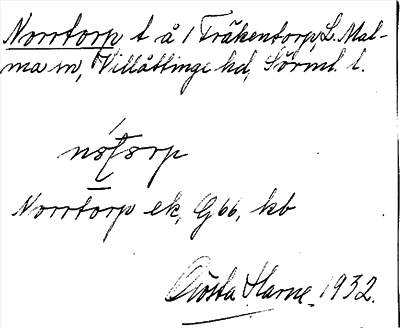 Norrtorp t å 1 Träkentorp, L. Mal-
ma sn, Villåttinge hd, Sörml. l.
nórtorp
Norrtorp ek, G66, kb
Gösta Harne 1932.